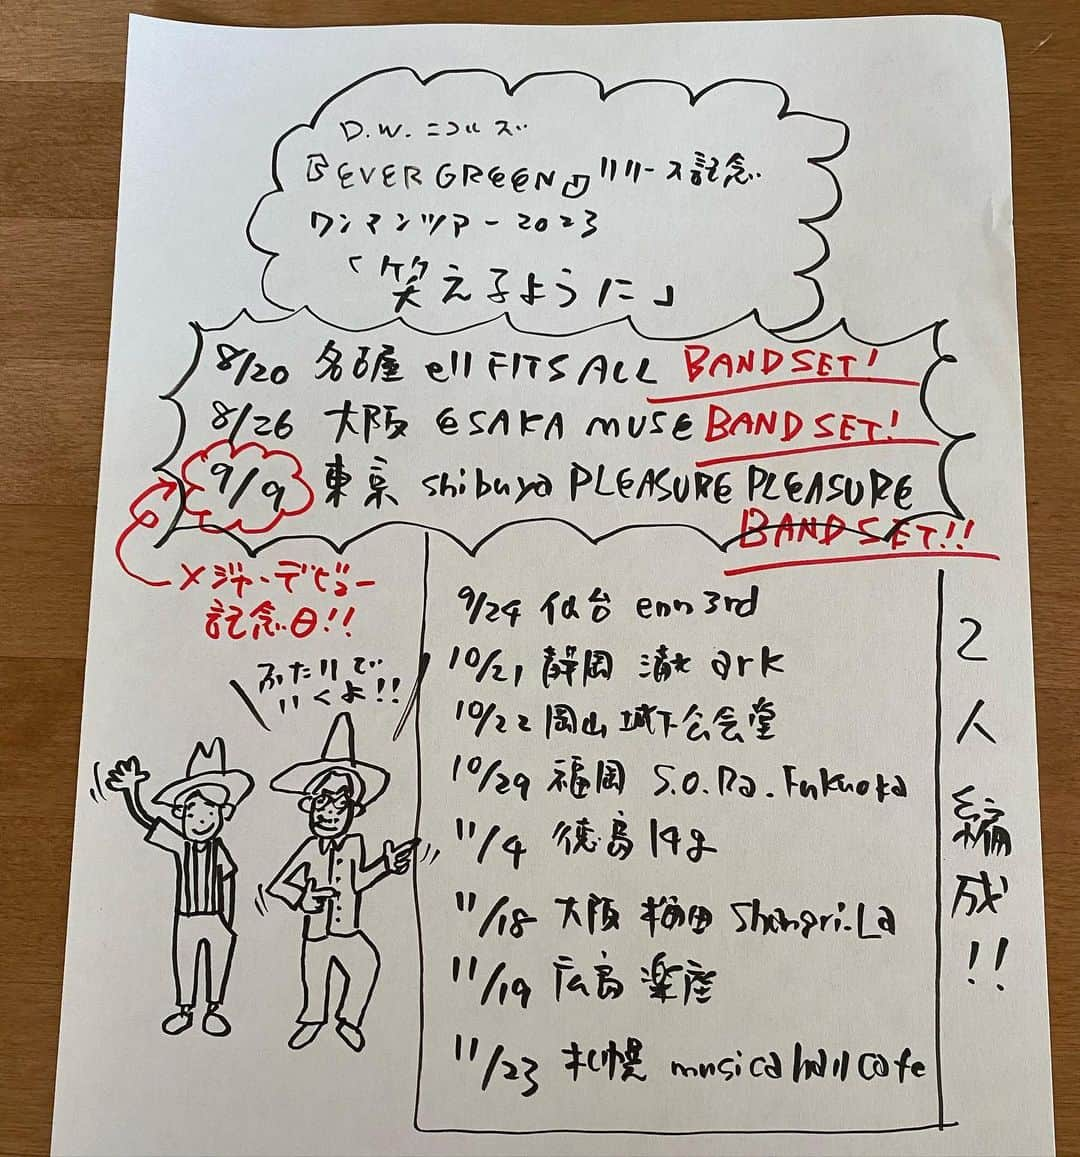 D.W.ニコルズ
『EVERGREEN』リリース記念
ワンマンツアー2023
「笑えるように」
8/20 名古屋 ell FITS ALL BAND SET!
8/26 大阪 ESAKA MUSE BAND SET!
9/9 東京 shibuya PLEASURE PLEASURE
BAND SET!!
メジャーデビュー
記念日!!
ふたりで
いくよ!!
9/24 仙台 enn 3rd
10/21 静岡 清水 ark
10/22 岡山 城下公会堂
10/29 福岡 S.O.Ra.Fukuoka
11/4 徳島 14g
11/18 大阪 梅田 Shangri-La
11/19 広島 楽座
11/23 札幌 musica hall cafe
2人編成!!